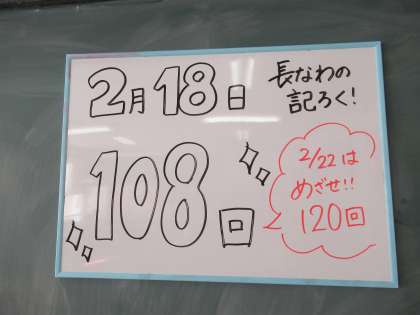 2月18日
長なわの
記ろく!
108回
2/22は
めざせ!!
120回